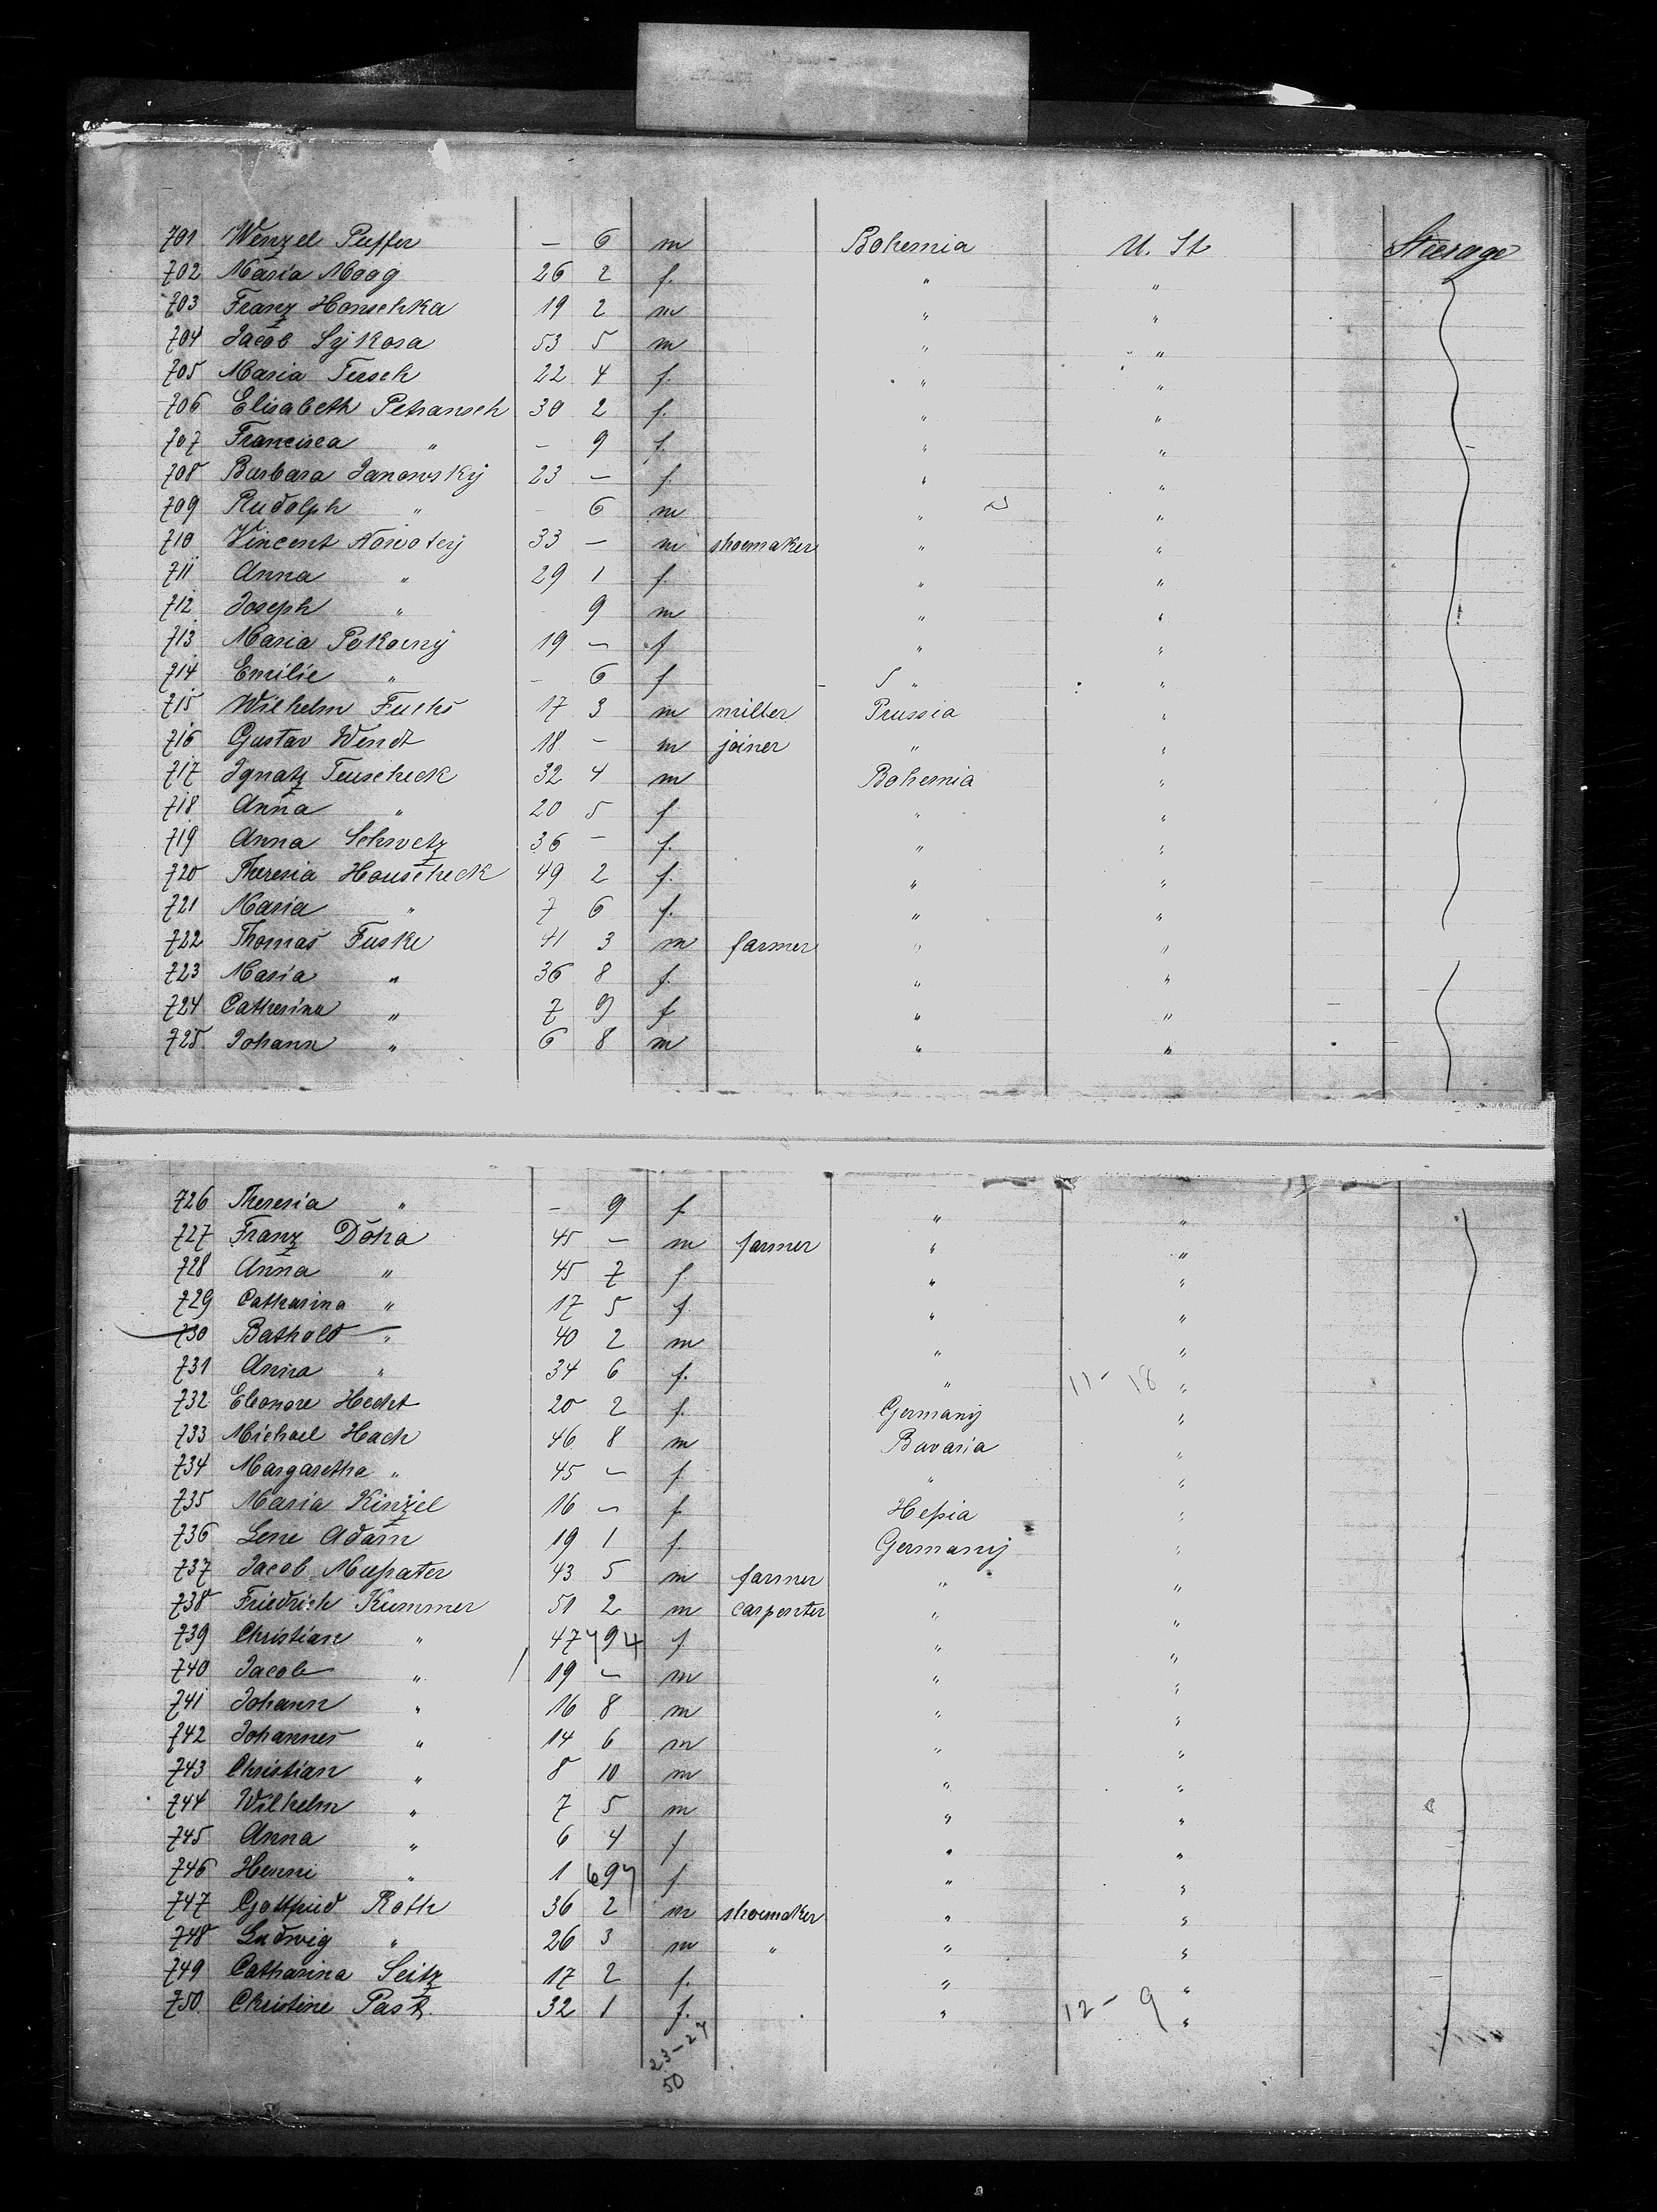 701 Wenzel Puffer — 6 m Bohemia U. St Steerage
702 Maria Maag 26 2 f. " "
703 Franz Honschka 19 2 m " "
704 Jacob Sykora 53 5 m " "
705 Maria Tersch 22 4 f. " "
706 Elisabeth Petransch 30 2 f. " "
707 Francisca " - 9 f. " "
708 Barbara Janowsky 23 — f. " "
709 Rudolph " - 6 m " "
710 Vincent Nowotny 33 — m shoemaker " "
711 Anna " 29 1 f. " "
712 Joseph " - 9 m " "
713 Maria Pokorny 19 — f " "
714 Emilie " - 6 f " "
715 Wilhelm Fuchs 17 3 m miller Prussia "
716 Gustav Wendt 18 - m joiner " "
717 Ignatz Teuscheck 32 4 m Bohemia "
718 Anna " 20 5 f " "
719 Anna Schwetz 36 - f. " "
720 Theresia Houscheck 49 2 f. " "
721 Maria " 7 6 f. " "
722 Thomas Fuske 41 3 m farmer " "
723 Maria " 36 8 f. " "
724 Catherina " 7 9 f " "
725. Johann " 6 8 m " "
726 Theresia " - 9 f " "
727 Franz Doha 45 — m farmer " "
728 Anna " 45 7 f. " "
729 Catharina " 17 5 f. " "
730 Bathold " 40 2 m " "
731 Anna " 34 6 f. " 11-18 "
732 Eleonore Hecht 20 2 f. Germany "
733 Michael Hach 46 8 m Bavaria "
734 Margaretha " 45 — f " "
735 Maria Kinzel 16 — f Heßia "
736 Lene Adam 19 1 f Germany "
737 Jacob Mußpater 43 5 m farmer " "
738 Friedrich Kummer 51 2 m carpenter " "
739 Christian " 47 494 f " "
740 Jacob " 19 — m " "
741 Johann " 16 8 m " "
742 Johannes " 14 6 m " "
743 Christian " 8 10 m " "
744 Wilhelm " 7 5 m " "
745 Anna " 6 4 f " "
746 Henni " 1 697 f " "
747 Gottfried Roth 36 2 m shoemaker " "
748 Ludwig " 26 3 m " " "
749 Catharina Seitz 17 2 f. " "
750. Christine Pask. 32 1 f. " 12-9 "
23-27
50